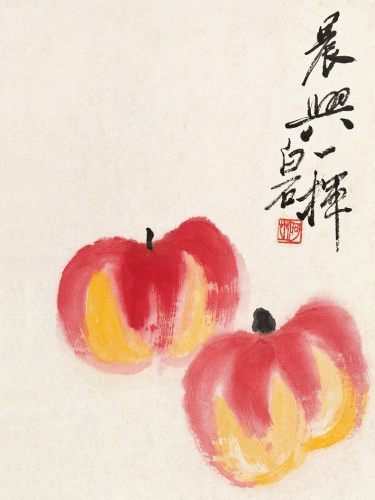 晨興一揮
白石